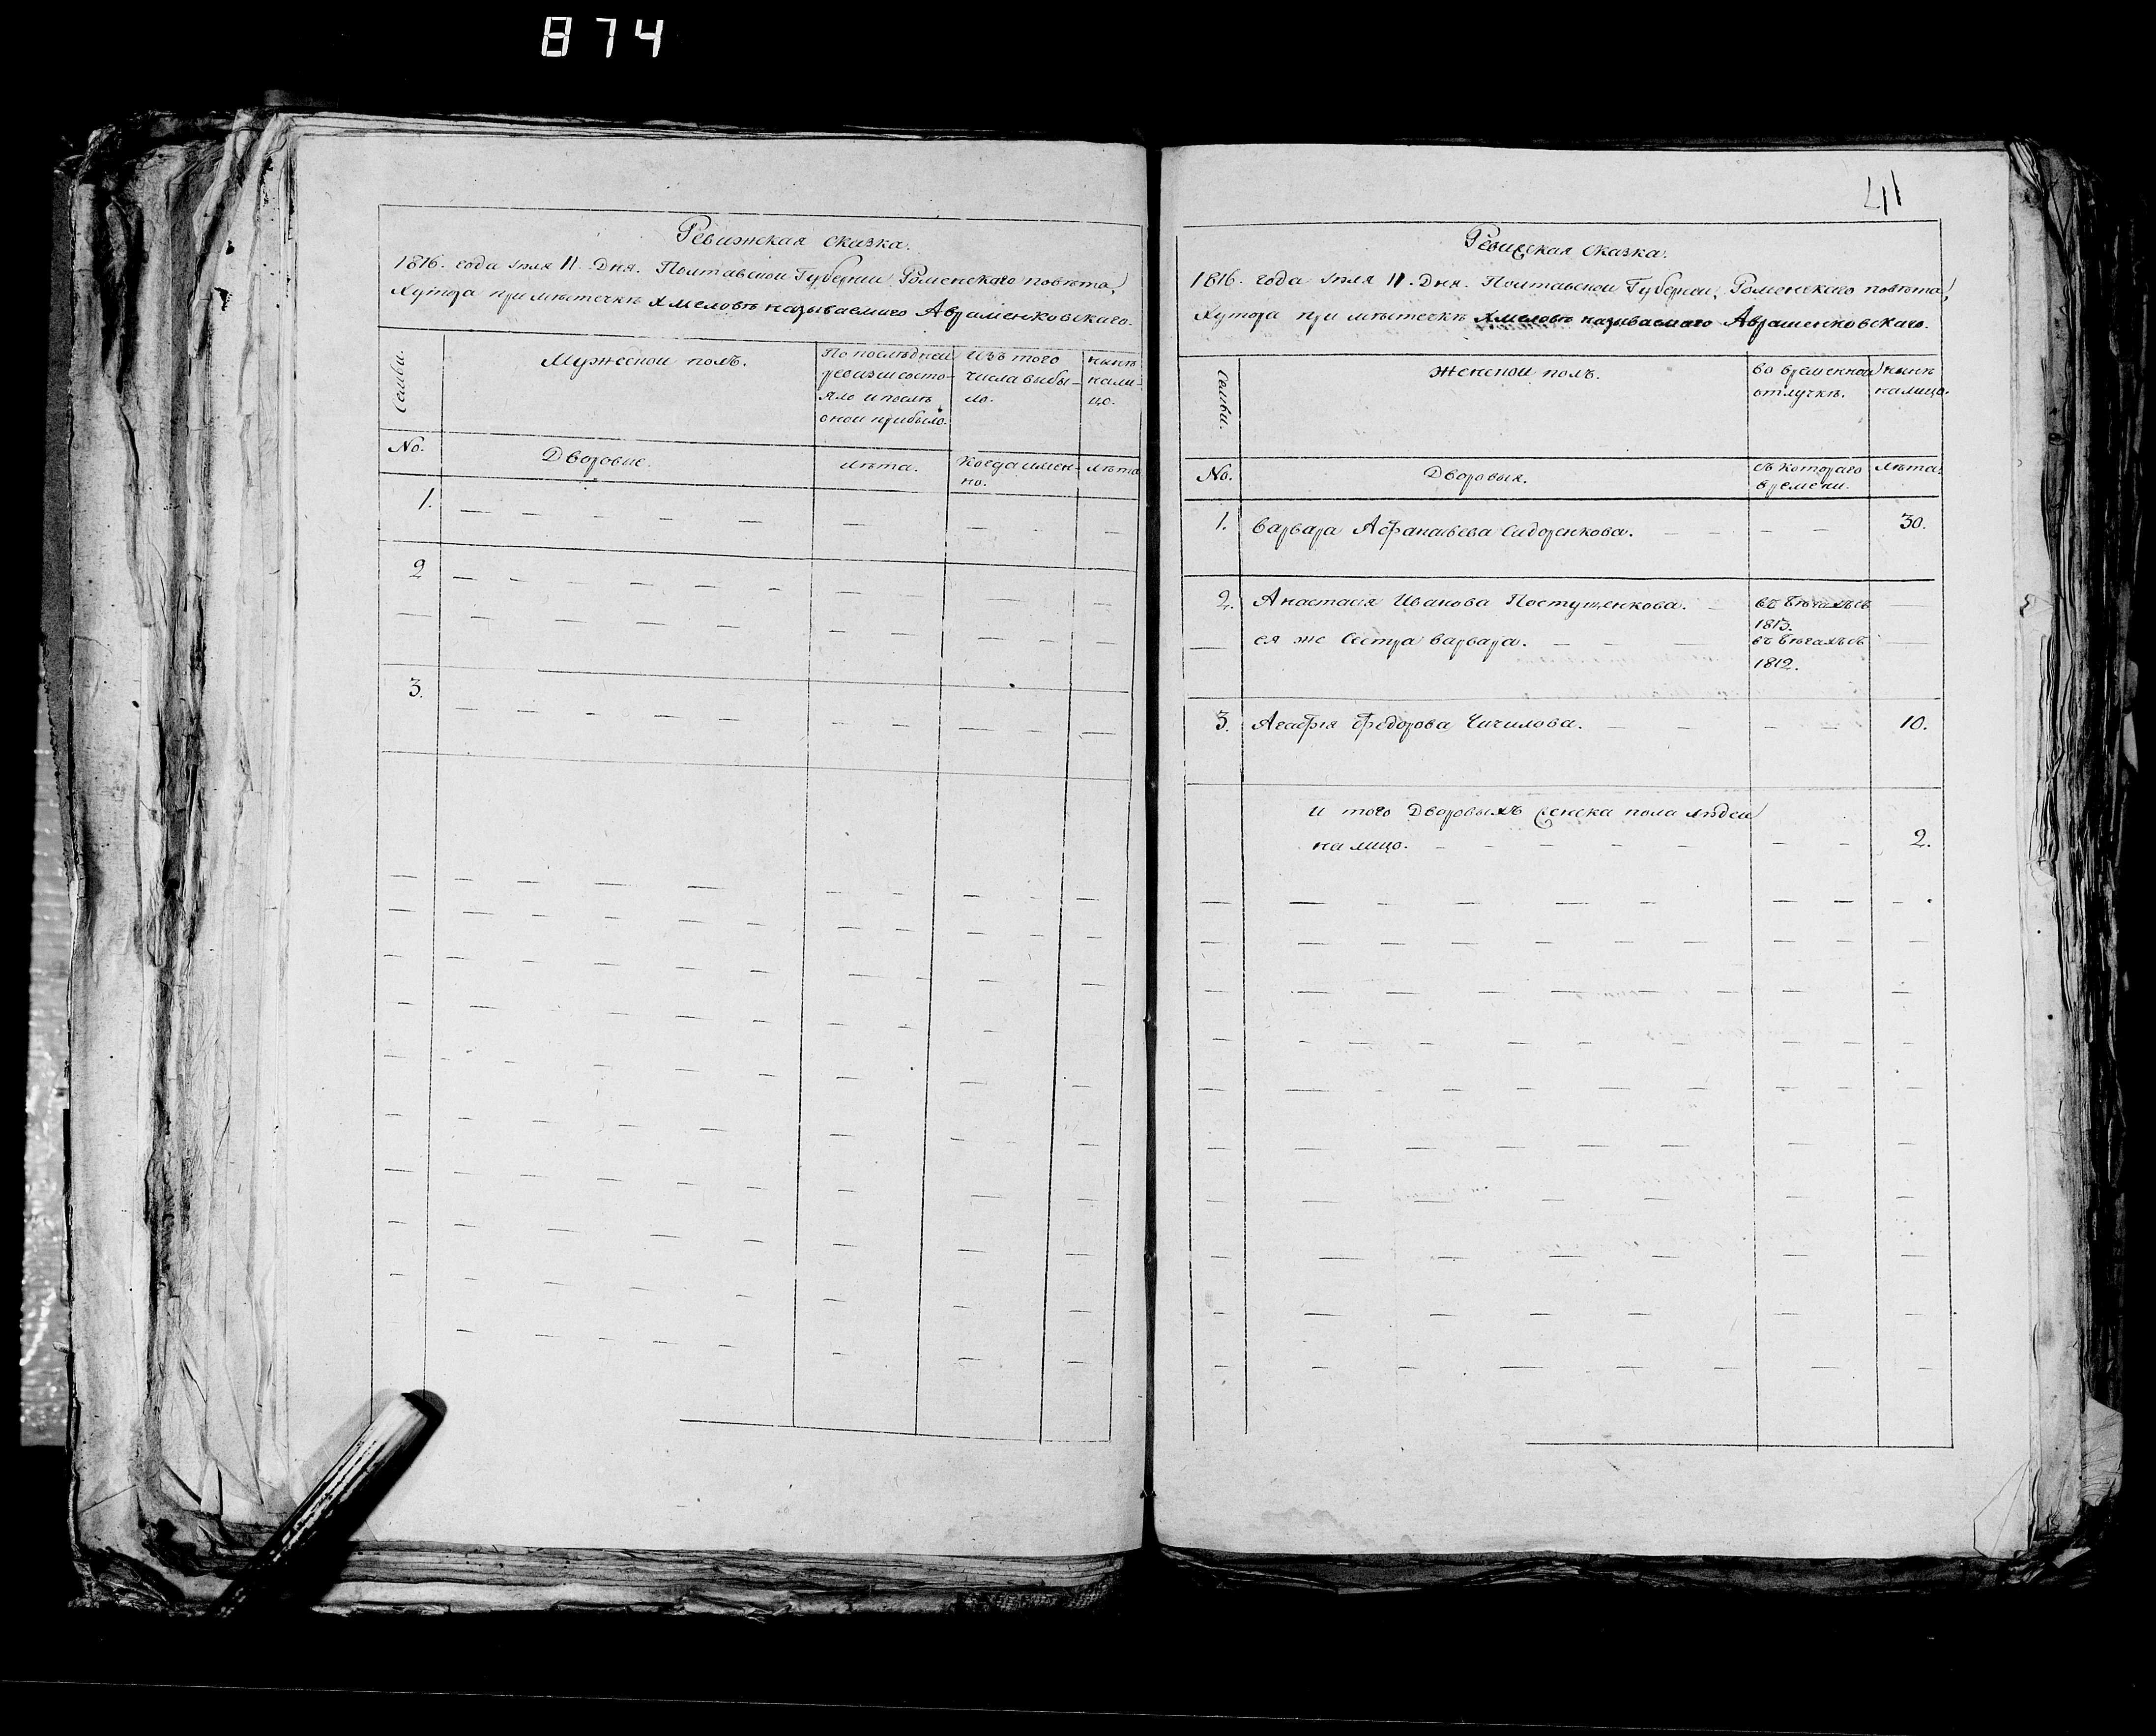 874
Ревижская сказка.
1816. года Iюля 11. Дня. Полтавской Губернии Роменского повѣта,
Хутора при мѣстечкѣ Хмеловѣ называемаго Авраменковскаго.
Семьи.
Мужеской полъ.
По последней
ревизии состо-
яло и послѣ
оной прибыло.
Изъ того
числа выбы-
ло.
нынѣ
нали-
цо.
No.
Дворовые.
лѣта.
Когда имен-
но.
лѣта
1.
2
3.
41
Ревижская сказка.
1816. года Iюля 11. Дня. Полтавской Губернии, Роменского повѣта,
Хутора при мѣстечкѣ Хмеловѣ называемаго Авраменковскаго.
Семьи.
Женской полъ.
во временной
отлучкѣ.
нынѣ
налицо.
No.
Дворовыя.
съ котораго
времени.
лѣта.
1. Варвара Афанасьева Сидоренкова. 30.
2. Анастасия Иванова Постушенкова. въ бѣгахъ съ
1813.
ея же Сестра Варвара. въ бѣгахъ съ
1812.
3. Агафия Федорова Чичилова. 10.
И того Дворовыхъ женска пола людей
на лицо. 2.